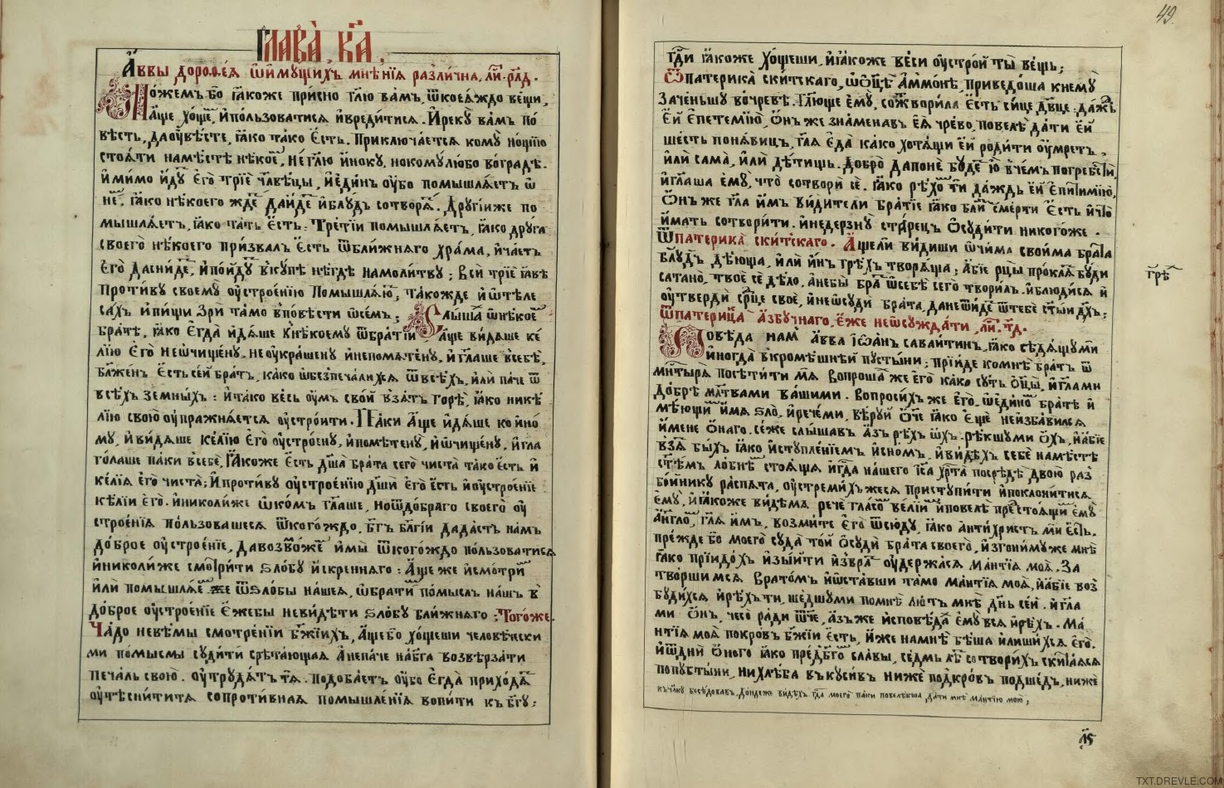 Глава̀, к҃а,
А҆ввы дороѳеѧ ѿимꙋщихъ мнѣнїѧ различна, ли҃, рл҃д.
Можемъ бо ꙗкоже присно гл҃ю вамъ, ѿкоеѧждо вещи,
аще хоще, и҆ползоватисѧ и҆вредитисѧ. И҆рекꙋ вамъ по
вѣсть, даоувѣсте, ꙗко тако є҆сть. Приключаетсѧ комꙋ нощїю
стоѧти намѣстѣ нѣкое, не гл҃ю и҆нокꙋ, нокомꙋлюбо воградѣ.
и҆мимо и҆дꙋ є҆го трїе чл҃вѣцы, и҆є҆динъ оубо помышлѧетъ ѡ
не, ꙗко нѣкоего жде даиде и҆блꙋдъ сотвори. Дрꙋгїиже по
мышлѧетъ, ꙗко тать є҆сть. Третїи помышлѧетъ, ꙗко дрꙋга
своего нѣкоего призвалъ є҆сть ѿближнѧго храма, и҆чаетъ
є҆го даснидє, и҆пойдꙋ вкꙋпѣ нѣгдѣ намолитвꙋ: вси трїе ꙗвѣ
противꙋ своемꙋ оустроенїю помышлѧю, такожде и҆ѿтѣле
сахъ и҆пищи зри тамо вповѣсти ѡсемъ; Слыша ѿнѣкоє
братѣ, ꙗко є҆гда и҆дѧше кнѣкоемꙋ ѿбратїи аще видѧше ке
лїю є҆го неѡчищенꙋ, неоукрашенꙋ и҆непомѣтенꙋ, и҆гл҃аше всебѣ,
блаженъ є҆сть сей братъ, како ѡбезпечалихсѧ ѿвсѣхъ, или паче ѿ
всѣхъ земныхъ: и҆тако весь оумъ свой взѧтъ горѣ, ꙗко никѣ
лїю свою оупражнѧетсѧ оустроити. Паки аще и҆дѧше ко ино
мꙋ, и҆видѧше келїю є҆го оустроенꙋ, и҆пометенꙋ, и҆ѡчищенꙋ, и҆гла
голаше паки всебѣ, ꙗкоже є҆сть дш҃а брата сего чиста тако есть и
келїѧ є҆го чиста; и҆противꙋ оустроенїю дш҃и є҆го є҆сть и҆оустроенїе
кѣлїи є҆го. и҆николиже ѡкомъ гл҃аше, ноѿдобраго своего оу
строенїѧ ползовашесѧ ѿкогождо. Бг҃ъ бл҃гїи дадастъ намъ
доброе оустроенїе, давозможе и҆мы ѿкогождо ползоватисѧ
и҆николиже смотрити ѕлобꙋ и҆скреннѧго: аще же и҆смотри
или помышлѧе же ѿѕлобы нашеѧ, ѡбрати помыслъ нашъ в
доброе оустроенїе є҆жебы невидѣти ѕлобꙋ ближнѧго; Тогоже.
Чадо невѣмы смотренїи бж҃їихъ, аще бо хощеши человѣчески
ми помыслы сꙋдити срѣтающаѧ аненаче наб҃га возверзати
печаль свою. оутрꙋдѧтъ тѧ. подобаетъ оубо є҆гда приходѧ
оутѣснитисѧ сопротивнаѧ помышленїѧ вопити къ бг҃ꙋ;
49
гд҃и ꙗкоже хощеши, и҆ꙗкоже веси оустрой ты вещь;
Ѿпатерика скитскаго, ѡѡц҃ѣ аммонѣ, приведоша кнемꙋ
заченьшꙋ вочревѣ. гл҃юще є҆мꙋ, сотворила є҆сть сице дв҃це: даждь
є҆й є҆петемїю, онъ же знаменавъ є҆ѧ чрево, повелѣ дати є҆й
шесть понѧвицъ, гл҃ѧ є҆да како хотѧщи є҆й родити оумретъ,
и҆ли сама, и҆ли дѣтищь. добрѣ дапонѣ бꙋде ю вчемъ погребсти,
и҆гл҃аша є҆мꙋ, что сотвори се. ꙗко рѣхо ти даждь є҆й є҆питимїю,
Онъ же гл҃а имъ видители братїе ꙗко близ смерти є҆сть и҆что
имать сотворити. и҆недерзнꙋ старецъ ѡсꙋдити никогоже.
Ѿпатерика скитскаго. Ащели видиши ѡчима своима брата
блꙋдъ дѣюща, или инъ грѣхъ творѧща; абїе рцы проклѧ бꙋди
сатано, твое се дѣло, анебы бра ѿсебѣ сего творилъ. и҆блюдисѧ и
оутверди срд҃це свое, и҆неѡсꙋди брата, данеѿиде ѿтебе ст҃ыи дх҃ъ;
грѣ
Ѿпатерица азбꙋчнаго. є҆же неѡсꙋждати, ли҃, чд҃.
Поведа нам авва іѡаннъ савантинъ, ꙗко сѣдѧщꙋми
и҆ногда вкромѣшнѣй пꙋстыни. прїиде комнѣ братъ ѿ
мнтырѧ посѣтити мѧ вопроша же є҆го како сꙋть оц҃ы, и҆гл҃ами
добрѣ мл҃твами вашими. Вопросихъ же є҆го. ѡединѡ братѣ и
мѣющи имѧ ѕло, и҆речеми, вѣрꙋй о҃че ꙗко є҆ще неизбавилсѧ
имене ѻнаго. се же слышавъ азъ рѣхъ ѡхъ. рѣкшꙋми ѻхъ, и҆абїе
взѧ быхъ ꙗко и҆стꙋпленїемъ и҆сномъ, и҆видѣхъ себѣ намѣстѣ
ст҃ѣмъ лобнѣ стоѧща и҆гда нашего іс҃а хрт҃а посредѣ двою раз
бойникꙋ распѧта, оустремихъжесѧ пристꙋпити и҆поклонитисѧ
є҆мꙋ, и҆ꙗкоже видѣмѧ рече гласо велїи и҆повелѣ престоѧщи є҆мꙋ
англо, гл҃ѧ имъ, возмите є҆го ѿсюдꙋ, ꙗко антихристъ ми є҆сть.
прежде бо моего сꙋда той ѡсꙋди брата своего, и҆згонимꙋже мнѣ
ꙗко прїидохъ и҆зыити и҆звра оудержасѧ мантїѧ моѧ. за
творшимсѧ вратомъ и҆ѡставши тамо мантїѧ моѧ, и҆абїе воз
бꙋдихсѧ и҆рѣхъти, шедшꙋми помнѣ лютъ мнѣ дн҃ь сей. и҆гла
ми онъ, чесо ради ѿче, азъже исповѣда емꙋ всѧ и҆рѣхъ. Ма
нтїѧ моѧ покровъ бж҃їи є҆сть, иже намнѣ бѣша и҆лишихсѧ є҆го.
и҆ѿднй ѻного ꙗко предбг҃о славы, седмь лѣ сотворихъ скитаѧсѧ
попꙋстыни, нихлѣба вкꙋсивъ ниже подкровъ подшедъ, ниже
къчлкꙋ бесѣдовавъ, дондеже видѣхъ гд҃а моего паки повелѣвша дати мнѣ мантїю мою;
TXT.DREVLE.COM